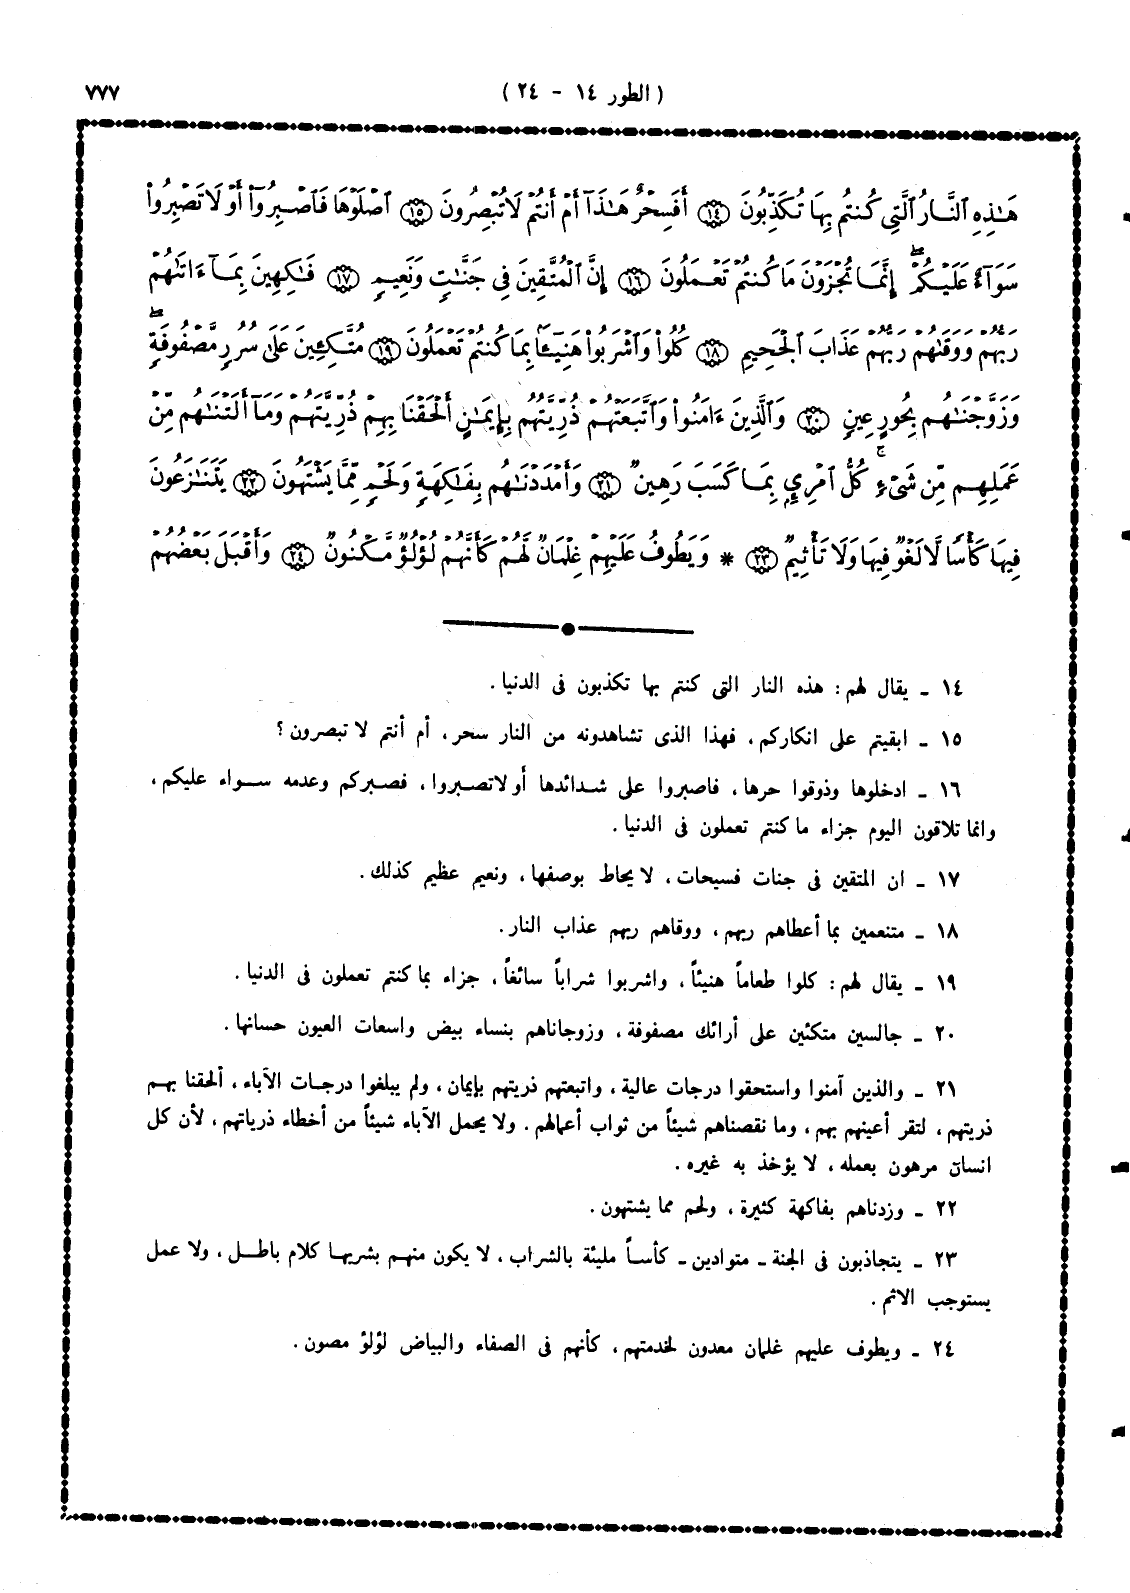 (الطور ١٤ - ٢٤)
٧٧٧
هَـٰذِهِ ٱلنَّارُ ٱلَّتِى كُنتُم بِهَا تُكَذِّبُونَ ١٤ أَفَسِحْرٌ هَـٰذَآ أَمْ أَنتُمْ لَا تُبْصِرُونَ ١٥ ٱصْلَوْهَا فَٱصْبِرُوٓا۟ أَوْ لَا تَصْبِرُوا۟
سَوَآءٌ عَلَيْكُمْ ۖ إِنَّمَا تُجْزَوْنَ مَا كُنتُمْ تَعْمَلُونَ ١٦ إِنَّ ٱلْمُتَّقِينَ فِى جَنَّـٰتٍ وَنَعِيمٍ ١٧ فَـٰكِهِينَ بِمَآ ءَاتَىٰهُمْ
رَبُّهُمْ وَوَقَىٰهُمْ رَبُّهُمْ عَذَابَ ٱلْجَحِيمِ ١٨ كُلُوا۟ وَٱشْرَبُوا۟ هَنِيٓـًٔۢا بِمَا كُنتُمْ تَعْمَلُونَ ١٩ مُتَّكِـِٔينَ عَلَىٰ سُرُرٍ مَّصْفُوفَةٍ ۖ
وَزَوَّجْنَـٰهُم بِحُورٍ عِينٍ ٢٠ وَٱلَّذِينَ ءَامَنُوا۟ وَٱتَّبَعَتْهُمْ ذُرِّيَّتُهُم بِإِيمَـٰنٍ أَلْحَقْنَا بِهِمْ ذُرِّيَّتَهُمْ وَمَآ أَلَتْنَـٰهُم مِّنْ
عَمَلِهِم مِّن شَىْءٍ ۚ كُلُّ ٱمْرِئٍۭ بِمَا كَسَبَ رَهِينٌ ٢١ وَأَمْدَدْنَـٰهُم بِفَـٰكِهَةٍ وَلَحْمٍ مِّمَّا يَشْتَهُونَ ٢٢ يَتَنَـٰزَعُونَ
فِيهَا كَأْسًا لَّا لَغْوٌ فِيهَا وَلَا تَأْثِيمٌ ٢٣ * وَيَطُوفُ عَلَيْهِمْ غِلْمَانٌ لَّهُمْ كَأَنَّهُمْ لُؤْلُؤٌ مَّكْنُونٌ ٢٤ وَأَقْبَلَ بَعْضُهُمْ
١٤ ـ يقال لهم: هذه النار التى كنتم بها تكذبون فى الدنيا.
١٥ ـ ابقيتم على انكاركم، فهذا الذى تشاهدونه من النار سحر، أم أنتم لا تبصرون؟
١٦ ـ ادخلوها وذوقوا حرها، فاصبروا على شدائدها أو لا تصبروا، فصبركم وعدمه سواء عليكم،
وانما تلاقون اليوم جزاء ما كنتم تعملون فى الدنيا.
١٧ ـ ان المتقين فى جنات فسيحات، لا يحاط بوصفها، ونعيم عظيم كذلك.
١٨ ـ متنعمين بما أعطاهم ربهم، ووقاهم ربهم عذاب النار.
١٩ ـ يقال لهم: كلوا طعاماً هنيئاً، واشربوا شراباً سائغاً، جزاء بما كنتم تعملون فى الدنيا.
٢٠ ـ جالسين متكئين على أرائك مصفوفة، وزوجاناهم بنساء بيض واسعات العيون حسانها.
٢١ ـ والذين آمنوا واستحقوا درجات عالية، واتبعتهم ذريتهم بإيمان، ولم يبلغوا درجات الآباء، ألحقنا بهم
ذريتهم، لتقر أعينهم بهم، وما نقصناهم شيئاً من ثواب أعمالهم. ولا يحمل الآباء شيئاً من أخطاء ذرياتهم، لأن كل
انسان مرهون بعمله، لا يؤخذ به غيره.
٢٢ ـ وزدناهم بفاكهة كثيرة، ولحم مما يشتهون.
٢٣ ـ يتجاذبون فى الجنة ـ متوادين ـ كأساً مليئة بالشراب، لا يكون منهم بشربها كلام باطل، ولا عمل
يستوجب الاثم.
٢٤ ـ ويطوف عليهم غلمان معدون لخدمتهم، كأنهم فى الصفاء والبياض لؤلؤ مصون.